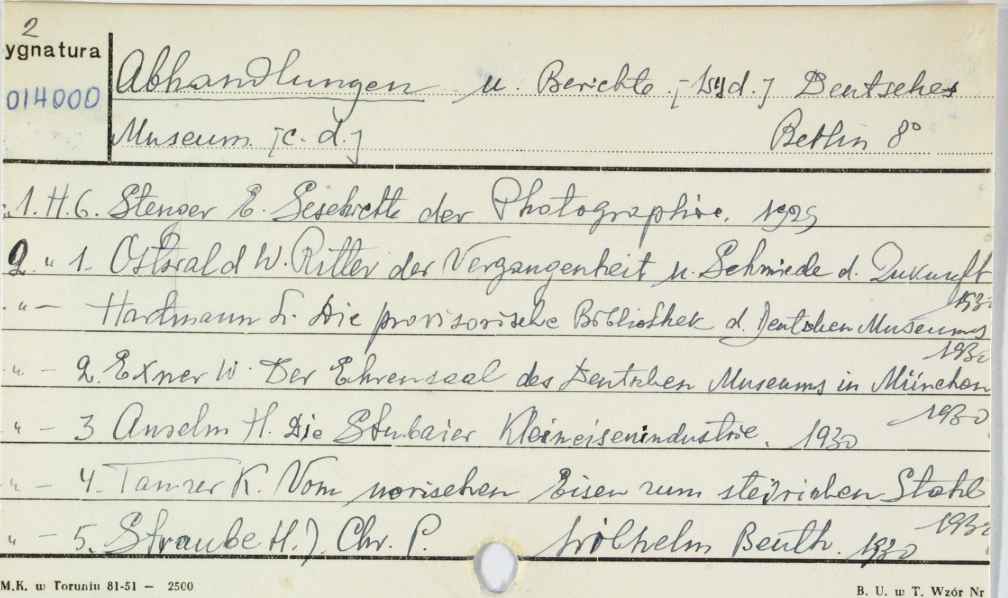 2
ygnatura
014000
Abhandlungen u. Berichte. [Wyd.] Deutsches
Museum [c. d.] Berlin 8°
1. H. 6. Stenger E. Geschichte der Photographie. 1929
2. " 1. Ostwald W. Ritter der Vergangenheit u. Schmiede d. Zukunft
1930
" — Hartmann L. Die provisorische Bibliothek d. Deutschen Museums
1930
" — 2. Exner W. Der Ehrensaal des Deutschen Museums in München
1930
" — 3 Anselm H. Die Stubaier Kleineisenindustrie. 1930
" — 4. K. Vom norischen Eisen zum steirischen Stahl
1930
" — 5. Straube H. J. Chr. P. Wilhelm Beuth. 1930
M.K. w Toruniu 81-51 — 2500
B. U. w T. Wzór Nr